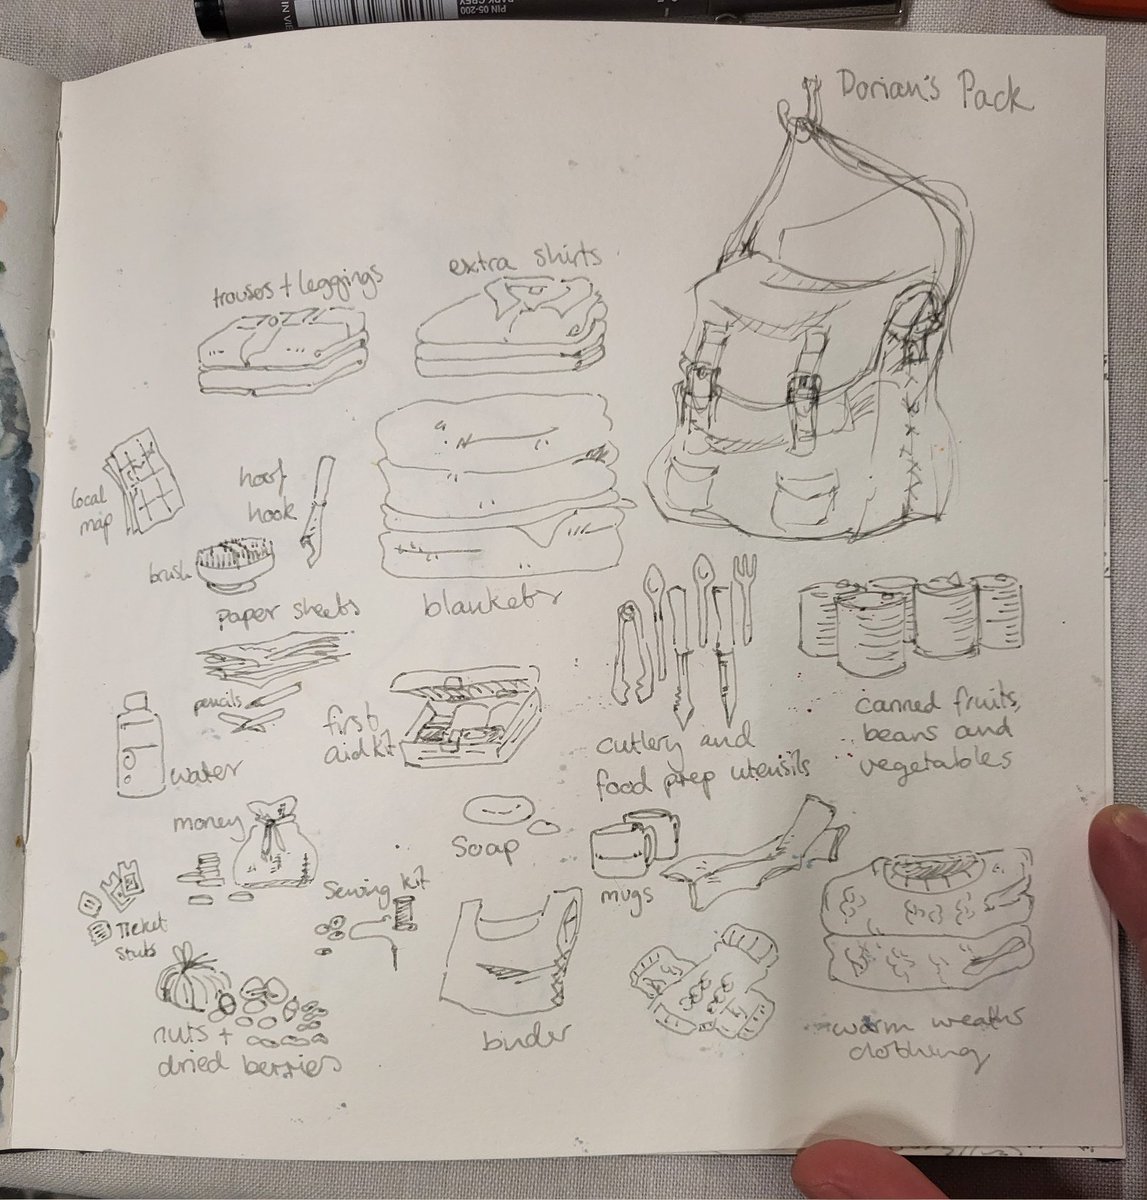 PIN 05-200
DARK GREY
Dorian's Pack
extra shirts
trouses + leggings
local
map
hoof
hook
brush
paper sheets
blankets
pencils
first
aid kit
water
cutlery and
food prep utensils
canned fruits,
beans and
vegetables
money
soap
mugs
Sewing kit
Ticket
Stubs
nuts +
dried berries
binder
warm
clothing